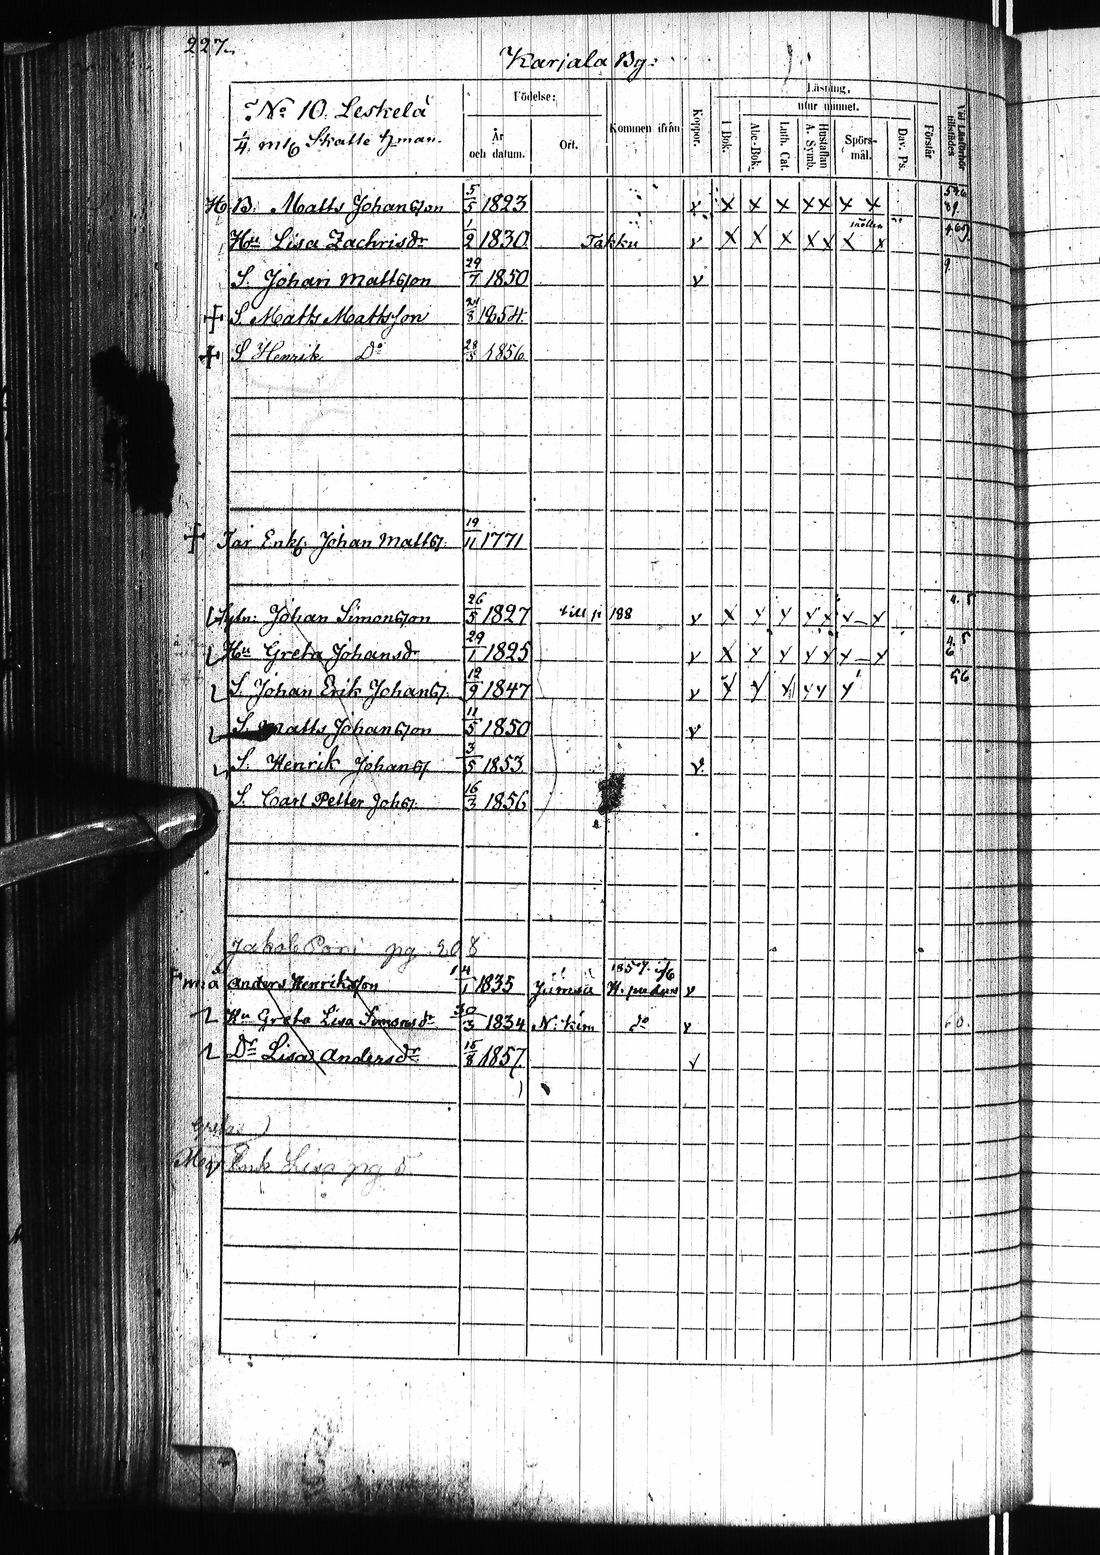 227.
Karjala By:
No 10. Leskelä
1/4 mtl Skatte hman.
Födelse:
År och datum.
Ort.
Kommen ifrån
Koppor.
Läsning,
utur minnet.
I Bok.
Abc-Bok.
Luth. Cat.
Hustaflan A. Symb.
Spörs-mål.
Dav. Ps.
Förstår
Vid Läsförhör tillstädes
B. Matts Johansson 5/5 1823 v x x x x x x x
Hu Lisa Zachrisdr 1/2 1830 Takku v x x x x x x x
S. Johan Mattsson 29/7 1850 v
+ S. Matts Mattsson 24/3 1854
+ S Henrik Do 28/3 1856
+ Far Enkl. Johan Matts. 19/11 1771
Johan Simonsson 26/5 1827 till p 188 v x x x x x x – x
Hu Greta Johansdr 29/1 1825 v x x x x x x – x
S. Johan Erik Johans. 12/9 1847 v
S. Matts Johansson 11/5 1850 v
S. Henrik Johans. 3/5 1853 v
S. Carl Petter Johs. 16/3 1856
Jakob pg. 208
Anders Henriksson 14/1 1835 1857 v
Hu Greta Lisa Simonsdr 30/3 1834 N. kim do v
Dr Lisa Andersdr 15/8 1857 v
Enk Lisa pg 5